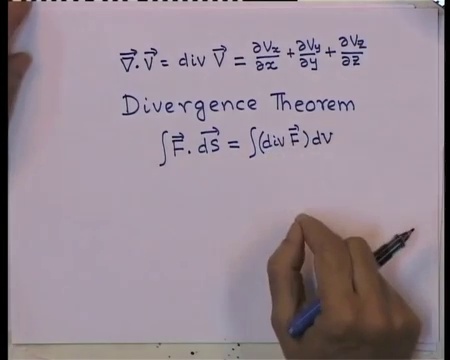 ∇⃗.V⃗ = div V⃗ = ∂Vx/∂x + ∂Vy/∂y + ∂Vz/∂z
Divergence Theorem
∫F⃗.dS⃗ = ∫(div F⃗)dv